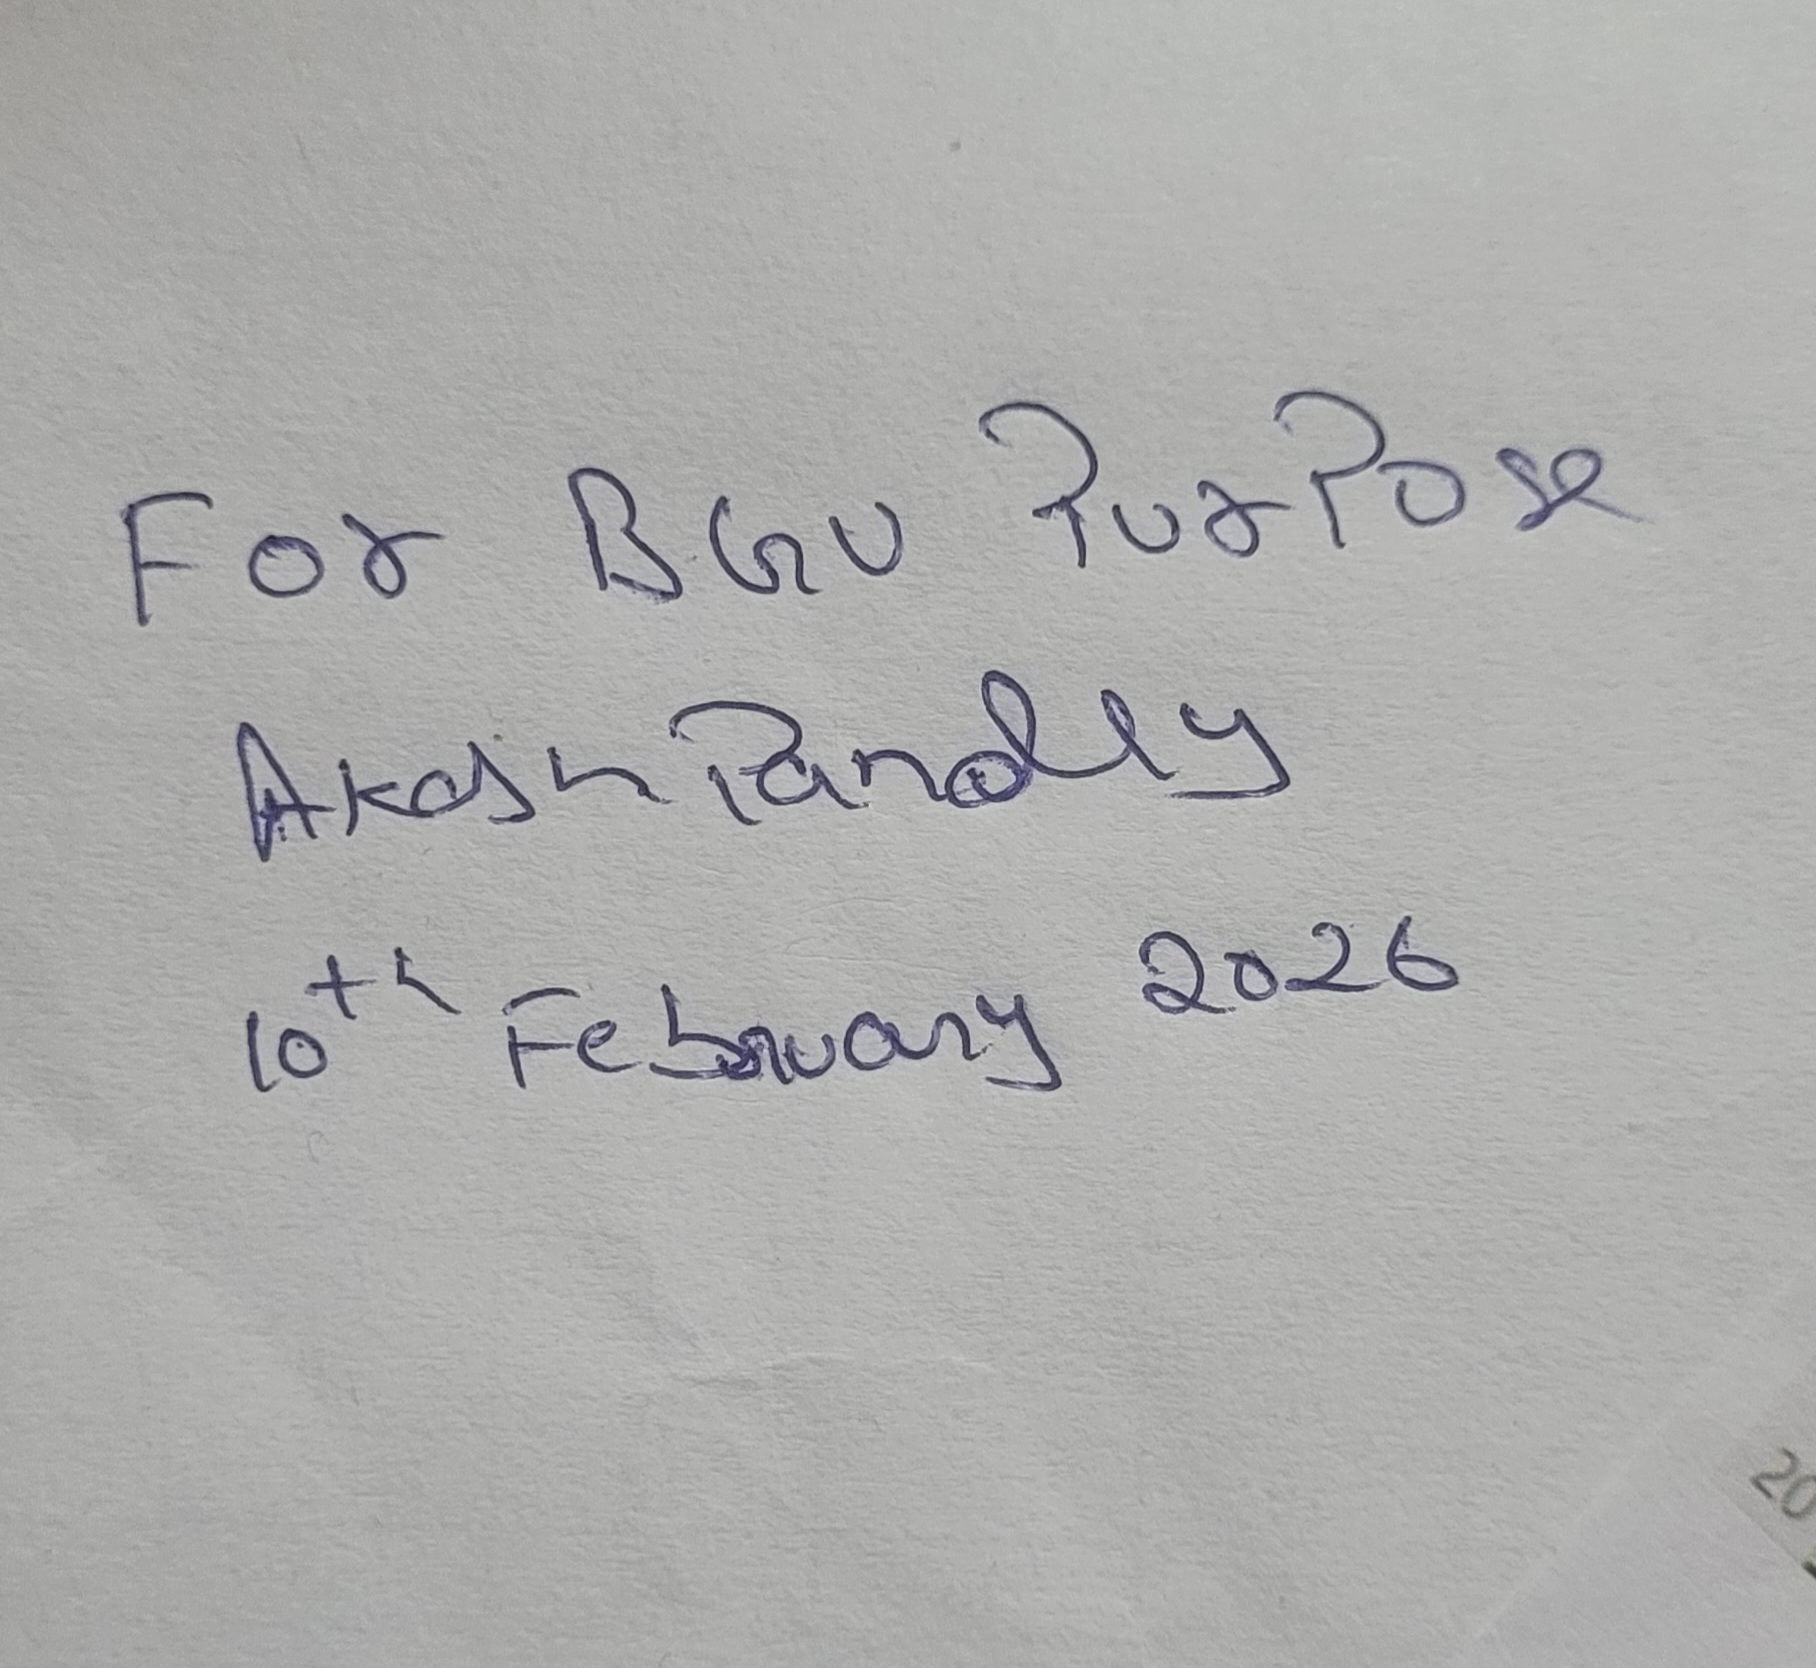 For BGU PurPose
Akash Pandey
10th February 2026
20